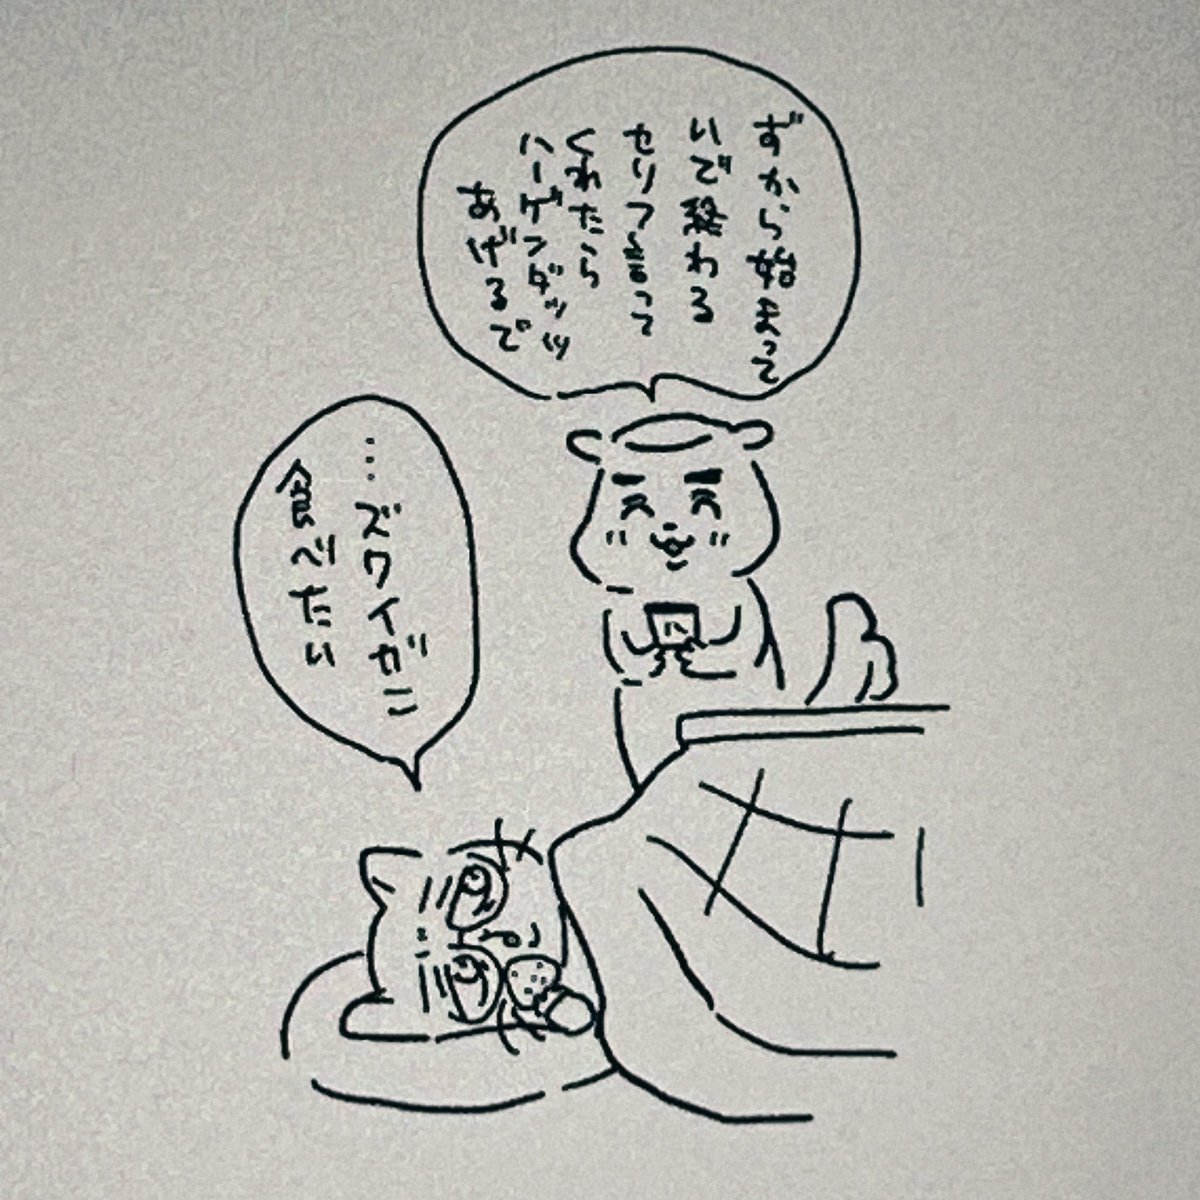 ずから始まって
いで終わる
セリフ言って
くれたら
ハーゲンダッツ
あげるで
…ズワイガニ
食べたい
ハ